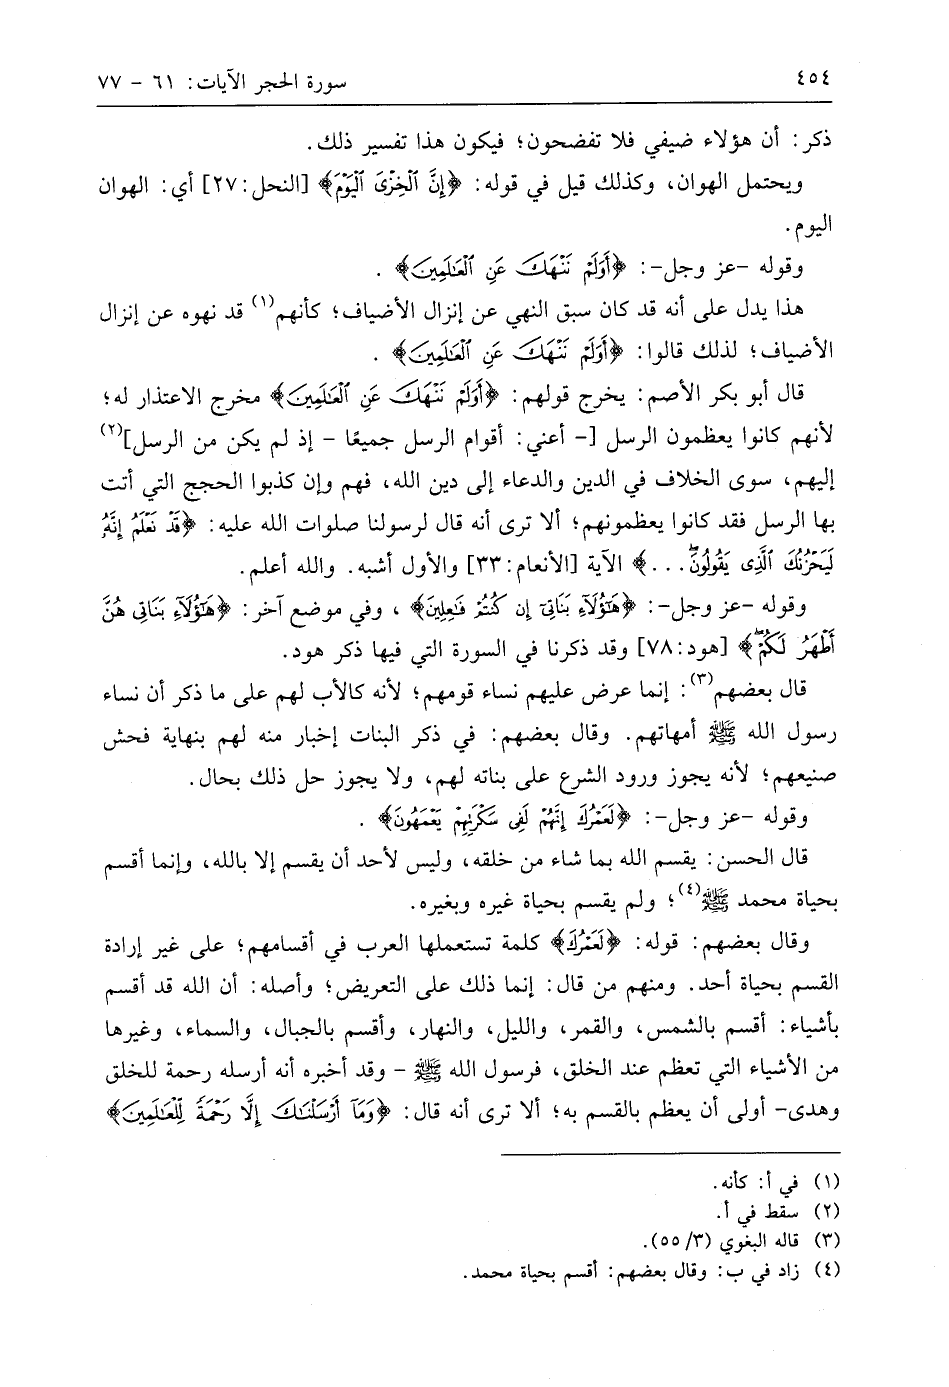 ٤٥٤
سورة الحجر الآيات: ٦١ - ٧٧
ذكر: أن هؤلاء ضيفي فلا تفضحون؛ فيكون هذا تفسير ذلك.
ويحتمل الهوان، وكذلك قيل في قوله: ﴿إِنَّ ٱلْخِزْىَ ٱلْيَوْمَ﴾ [النحل: ٢٧] أي: الهوان
اليوم.
وقوله -عز وجل-: ﴿أَوَلَمْ نَنْهَكَ عَنِ ٱلْعَٰلَمِينَ﴾ .
هذا يدل على أنه قد كان سبق النهي عن إنزال الأضياف؛ كأنهم(١) قد نهوه عن إنزال
الأضياف؛ لذلك قالوا: ﴿أَوَلَمْ نَنْهَكَ عَنِ ٱلْعَٰلَمِينَ﴾ .
قال أبو بكر الأصم: يخرج قولهم: ﴿أَوَلَمْ نَنْهَكَ عَنِ ٱلْعَٰلَمِينَ﴾ مخرج الاعتذار له؛
لأنهم كانوا يعظمون الرسل [- أعني: أقوام الرسل جميعًا - إذ لم يكن من الرسل](٢)
إليهم، سوى الخلاف في الدين والدعاء إلى دين الله، فهم وإن كذبوا الحجج التي أتت
بها الرسل فقد كانوا يعظمونهم؛ ألا ترى أنه قال لرسولنا صلوات الله عليه: ﴿قَدْ نَعْلَمُ إِنَّهُۥ
لَيَحْزُنُكَ ٱلَّذِى يَقُولُونَۖ...﴾ الآية [الأنعام: ٣٣] والأول أشبه. والله أعلم.
وقوله -عز وجل-: ﴿هَٰٓؤُلَآءِ بَنَاتِىٓ إِن كُنتُمْ فَٰعِلِينَ﴾ ، وفي موضع آخر: ﴿هَٰٓؤُلَآءِ بَنَاتِى هُنَّ
أَطْهَرُ لَكُمْۖ﴾ [هود: ٧٨] وقد ذكرنا في السورة التي فيها ذكر هود.
قال بعضهم(٣): إنما عرض عليهم نساء قومهم؛ لأنه كالأب لهم على ما ذكر أن نساء
رسول الله ﷺ أمهاتهم. وقال بعضهم: في ذكر البنات إخبار منه لهم بنهاية فحش
صنيعهم؛ لأنه يجوز ورود الشرع على بناته لهم، ولا يجوز حل ذلك بحال.
وقوله -عز وجل-: ﴿لَعَمْرُكَ إِنَّهُمْ لَفِى سَكْرَتِهِمْ يَعْمَهُونَ﴾ .
قال الحسن: يقسم الله بما شاء من خلقه، وليس لأحد أن يقسم إلا بالله، وإنما أقسم
بحياة محمد ﷺ(٤)؛ ولم يقسم بحياة غيره وبغيره.
وقال بعضهم: قوله: ﴿لَعَمْرُكَ﴾ كلمة تستعملها العرب في أقسامهم؛ على غير إرادة
القسم بحياة أحد. ومنهم من قال: إنما ذلك على التعريض؛ وأصله: أن الله قد أقسم
بأشياء: أقسم بالشمس، والقمر، والليل، والنهار، وأقسم بالجبال، والسماء، وغيرها
من الأشياء التي تعظم عند الخلق، فرسول الله ﷺ - وقد أخبره أنه أرسله رحمة للخلق
وهدى- أولى أن يعظم بالقسم به؛ ألا ترى أنه قال: ﴿وَمَآ أَرْسَلْنَٰكَ إِلَّا رَحْمَةً لِّلْعَٰلَمِينَ﴾
(١) في أ: كأنه.
(٢) سقط في أ.
(٣) قاله البغوي (٣/ ٥٥).
(٤) زاد في ب: وقال بعضهم: أقسم بحياة محمد.